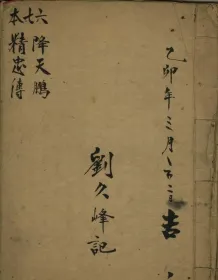 乙卯年三月 吉
劉久峰記
降天鵬
六七本
精忠傳